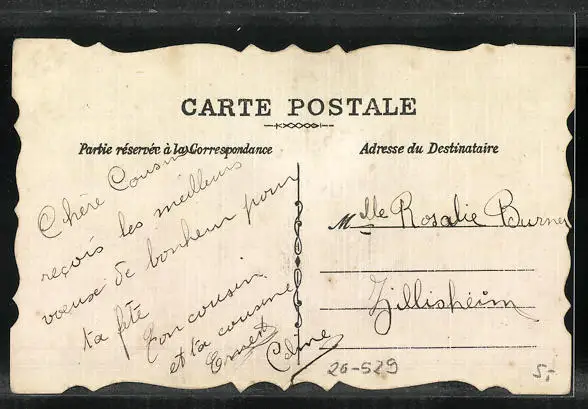 CARTE POSTALE
Partie réservée à la Correspondance
Adresse du Destinataire
Chère Cousine
reçois les meilleurs
voeux de bonheur pour
ta fête
Ton cousin
et ta cousine
Ernest
Céline
Mlle Rosalie Burner
Zillisheim
20-529
5,-